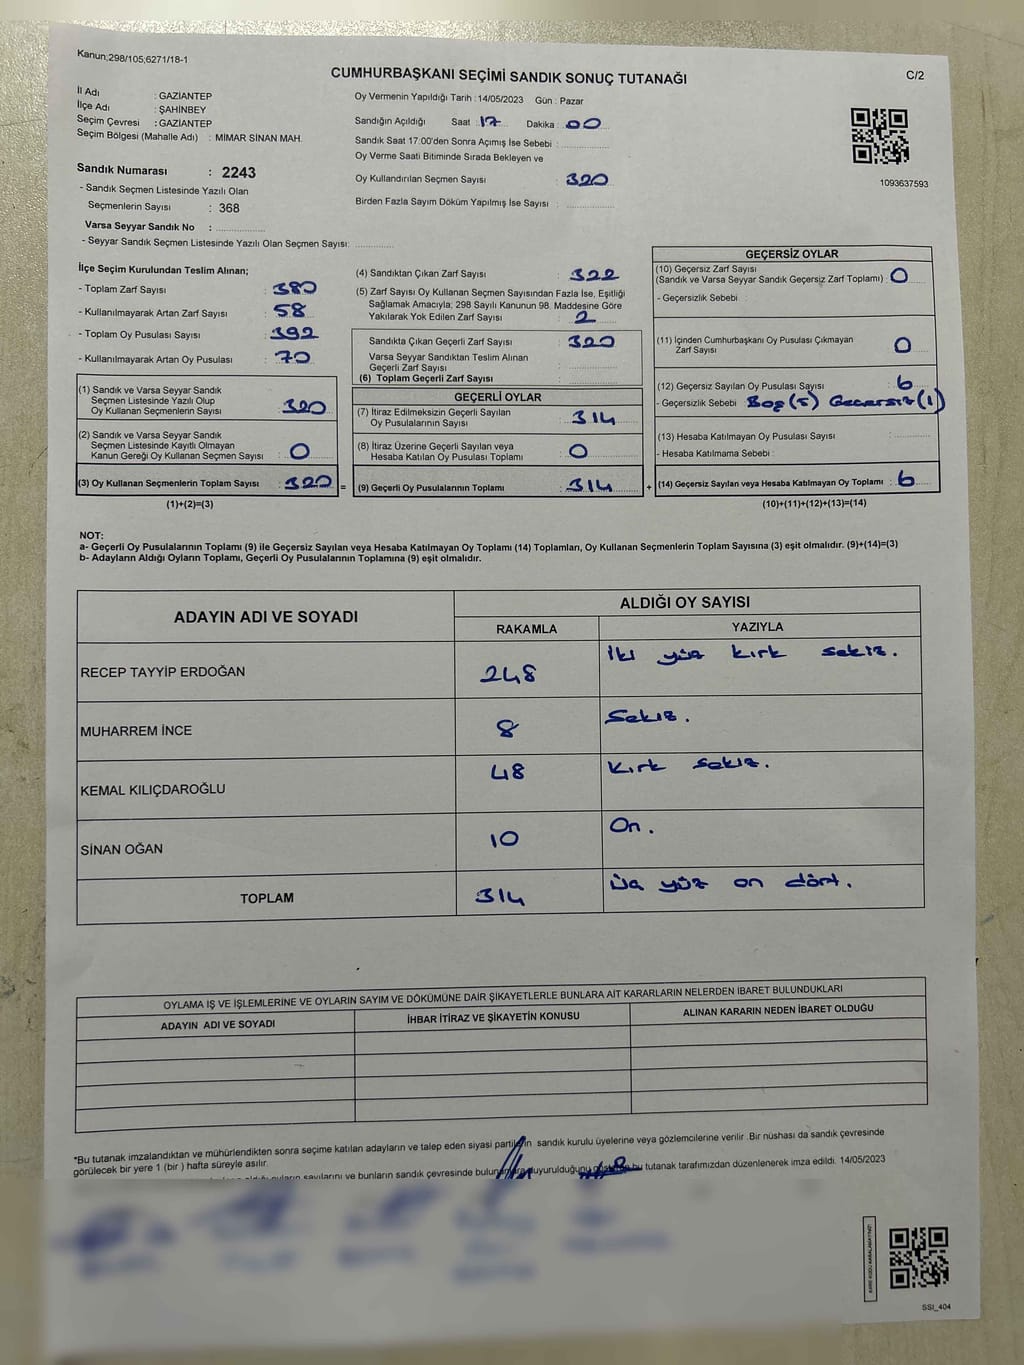 Kanun;298/105;6271/18-1
CUMHURBAŞKANI SEÇİMİ SANDIK SONUÇ TUTANAĞI
C/2
İl Adı : GAZİANTEP
İlçe Adı : ŞAHİNBEY
Seçim Çevresi : GAZİANTEP
Seçim Bölgesi (Mahalle Adı) : MİMAR SİNAN MAH.
Sandık Numarası : 2243
- Sandık Seçmen Listesinde Yazılı Olan
Seçmenlerin Sayısı : 368
Varsa Seyyar Sandık No :
- Seyyar Sandık Seçmen Listesinde Yazılı Olan Seçmen Sayısı:
Oy Vermenin Yapıldığı Tarih : 14/05/2023 Gün : Pazar
Sandığın Açıldığı Saat : 17 Dakika : 00
Sandık Saat 17:00'den Sonra Açımış İse Sebebi :
Oy Verme Saati Bitiminde Sırada Bekleyen ve
Oy Kullandırılan Seçmen Sayısı : 320
Birden Fazla Sayım Döküm Yapılmış İse Sayısı :
1093637593
İlçe Seçim Kurulundan Teslim Alınan;
- Toplam Zarf Sayısı : 380
- Kullanılmayarak Artan Zarf Sayısı : 58
- Toplam Oy Pusulası Sayısı : 392
- Kullanılmayarak Artan Oy Pusulası : 70
(1) Sandık ve Varsa Seyyar Sandık
Seçmen Listesinde Yazılı Olup
Oy Kullanan Seçmenlerin Sayısı : 320
(2) Sandık ve Varsa Seyyar Sandık
Seçmen Listesinde Kayıtlı Olmayan
Kanun Gereği Oy Kullanan Seçmen Sayısı : 0
(3) Oy Kullanan Seçmenlerin Toplam Sayısı : 320 =
(1)+(2)=(3)
(4) Sandıktan Çıkan Zarf Sayısı : 322
(5) Zarf Sayısı Oy Kullanan Seçmen Sayısından Fazla İse, Eşitliği
Sağlamak Amacıyla; 298 Sayılı Kanunun 98. Maddesine Göre
Yakılarak Yok Edilen Zarf Sayısı : 2
Sandıkta Çıkan Geçerli Zarf Sayısı : 320
Varsa Seyyar Sandıktan Teslim Alınan
Geçerli Zarf Sayısı :
(6) Toplam Geçerli Zarf Sayısı :
GEÇERLİ OYLAR
(7) İtiraz Edilmeksizin Geçerli Sayılan
Oy Pusulalarının Sayısı : 314
(8) İtiraz Üzerine Geçerli Sayılan veya
Hesaba Katılan Oy Pusulası Toplamı : 0
(9) Geçerli Oy Pusulalarının Toplamı : 314 +
GEÇERSİZ OYLAR
(10) Geçersiz Zarf Sayısı
(Sandık ve Varsa Seyyar Sandık Geçersiz Zarf Toplamı) : 0
- Geçersizlik Sebebi :
(11) İçinden Cumhurbaşkanı Oy Pusulası Çıkmayan
Zarf Sayısı : 0
(12) Geçersiz Sayılan Oy Pusulası Sayısı : 6
- Geçersizlik Sebebi : Boş (5) Geçersiz (1)
(13) Hesaba Katılmayan Oy Pusulası Sayısı :
- Hesaba Katılmama Sebebi :
(14) Geçersiz Sayılan veya Hesaba Katılmayan Oy Toplamı : 6
(10)+(11)+(12)+(13)=(14)
NOT:
a- Geçerli Oy Pusulalarının Toplamı (9) ile Geçersiz Sayılan veya Hesaba Katılmayan Oy Toplamı (14) Toplamları, Oy Kullanan Seçmenlerin Toplam Sayısına (3) eşit olmalıdır. (9)+(14)=(3)
b- Adayların Aldığı Oyların Toplamı, Geçerli Oy Pusulalarının Toplamına (9) eşit olmalıdır.
ADAYIN ADI VE SOYADI
ALDIĞI OY SAYISI
RAKAMLA YAZIYLA
RECEP TAYYİP ERDOĞAN 248 İki yüz kırk sekiz.
MUHARREM İNCE 8 Sekiz.
KEMAL KILIÇDAROĞLU 48 Kırk sekiz.
SİNAN OĞAN 10 On.
TOPLAM 314 Üç yüz on dört.
OYLAMA İŞ VE İŞLEMLERİNE VE OYLARIN SAYIM VE DÖKÜMÜNE DAİR ŞİKAYETLERLE BUNLARA AİT KARARLARIN NELERDEN İBARET BULUNDUKLARI
ADAYIN ADI VE SOYADI İHBAR İTİRAZ VE ŞİKAYETİN KONUSU ALINAN KARARIN NEDEN İBARET OLDUĞU
*Bu tutanak imzalandıktan ve mühürlendikten sonra seçime katılan adayların ve talep eden siyasi partilerin sandık kurulu üyelerine veya gözlemcilerine verilir .Bir nüshası da sandık çevresinde
görülecek bir yere 1 (bir ) hafta süreyle asılır.
oyların sayılarını ve bunların sandık çevresinde bulunanlara duyurulduğunu gösteren bu tutanak tarafımızdan düzenlenerek imza edildi. 14/05/2023
SSI_404